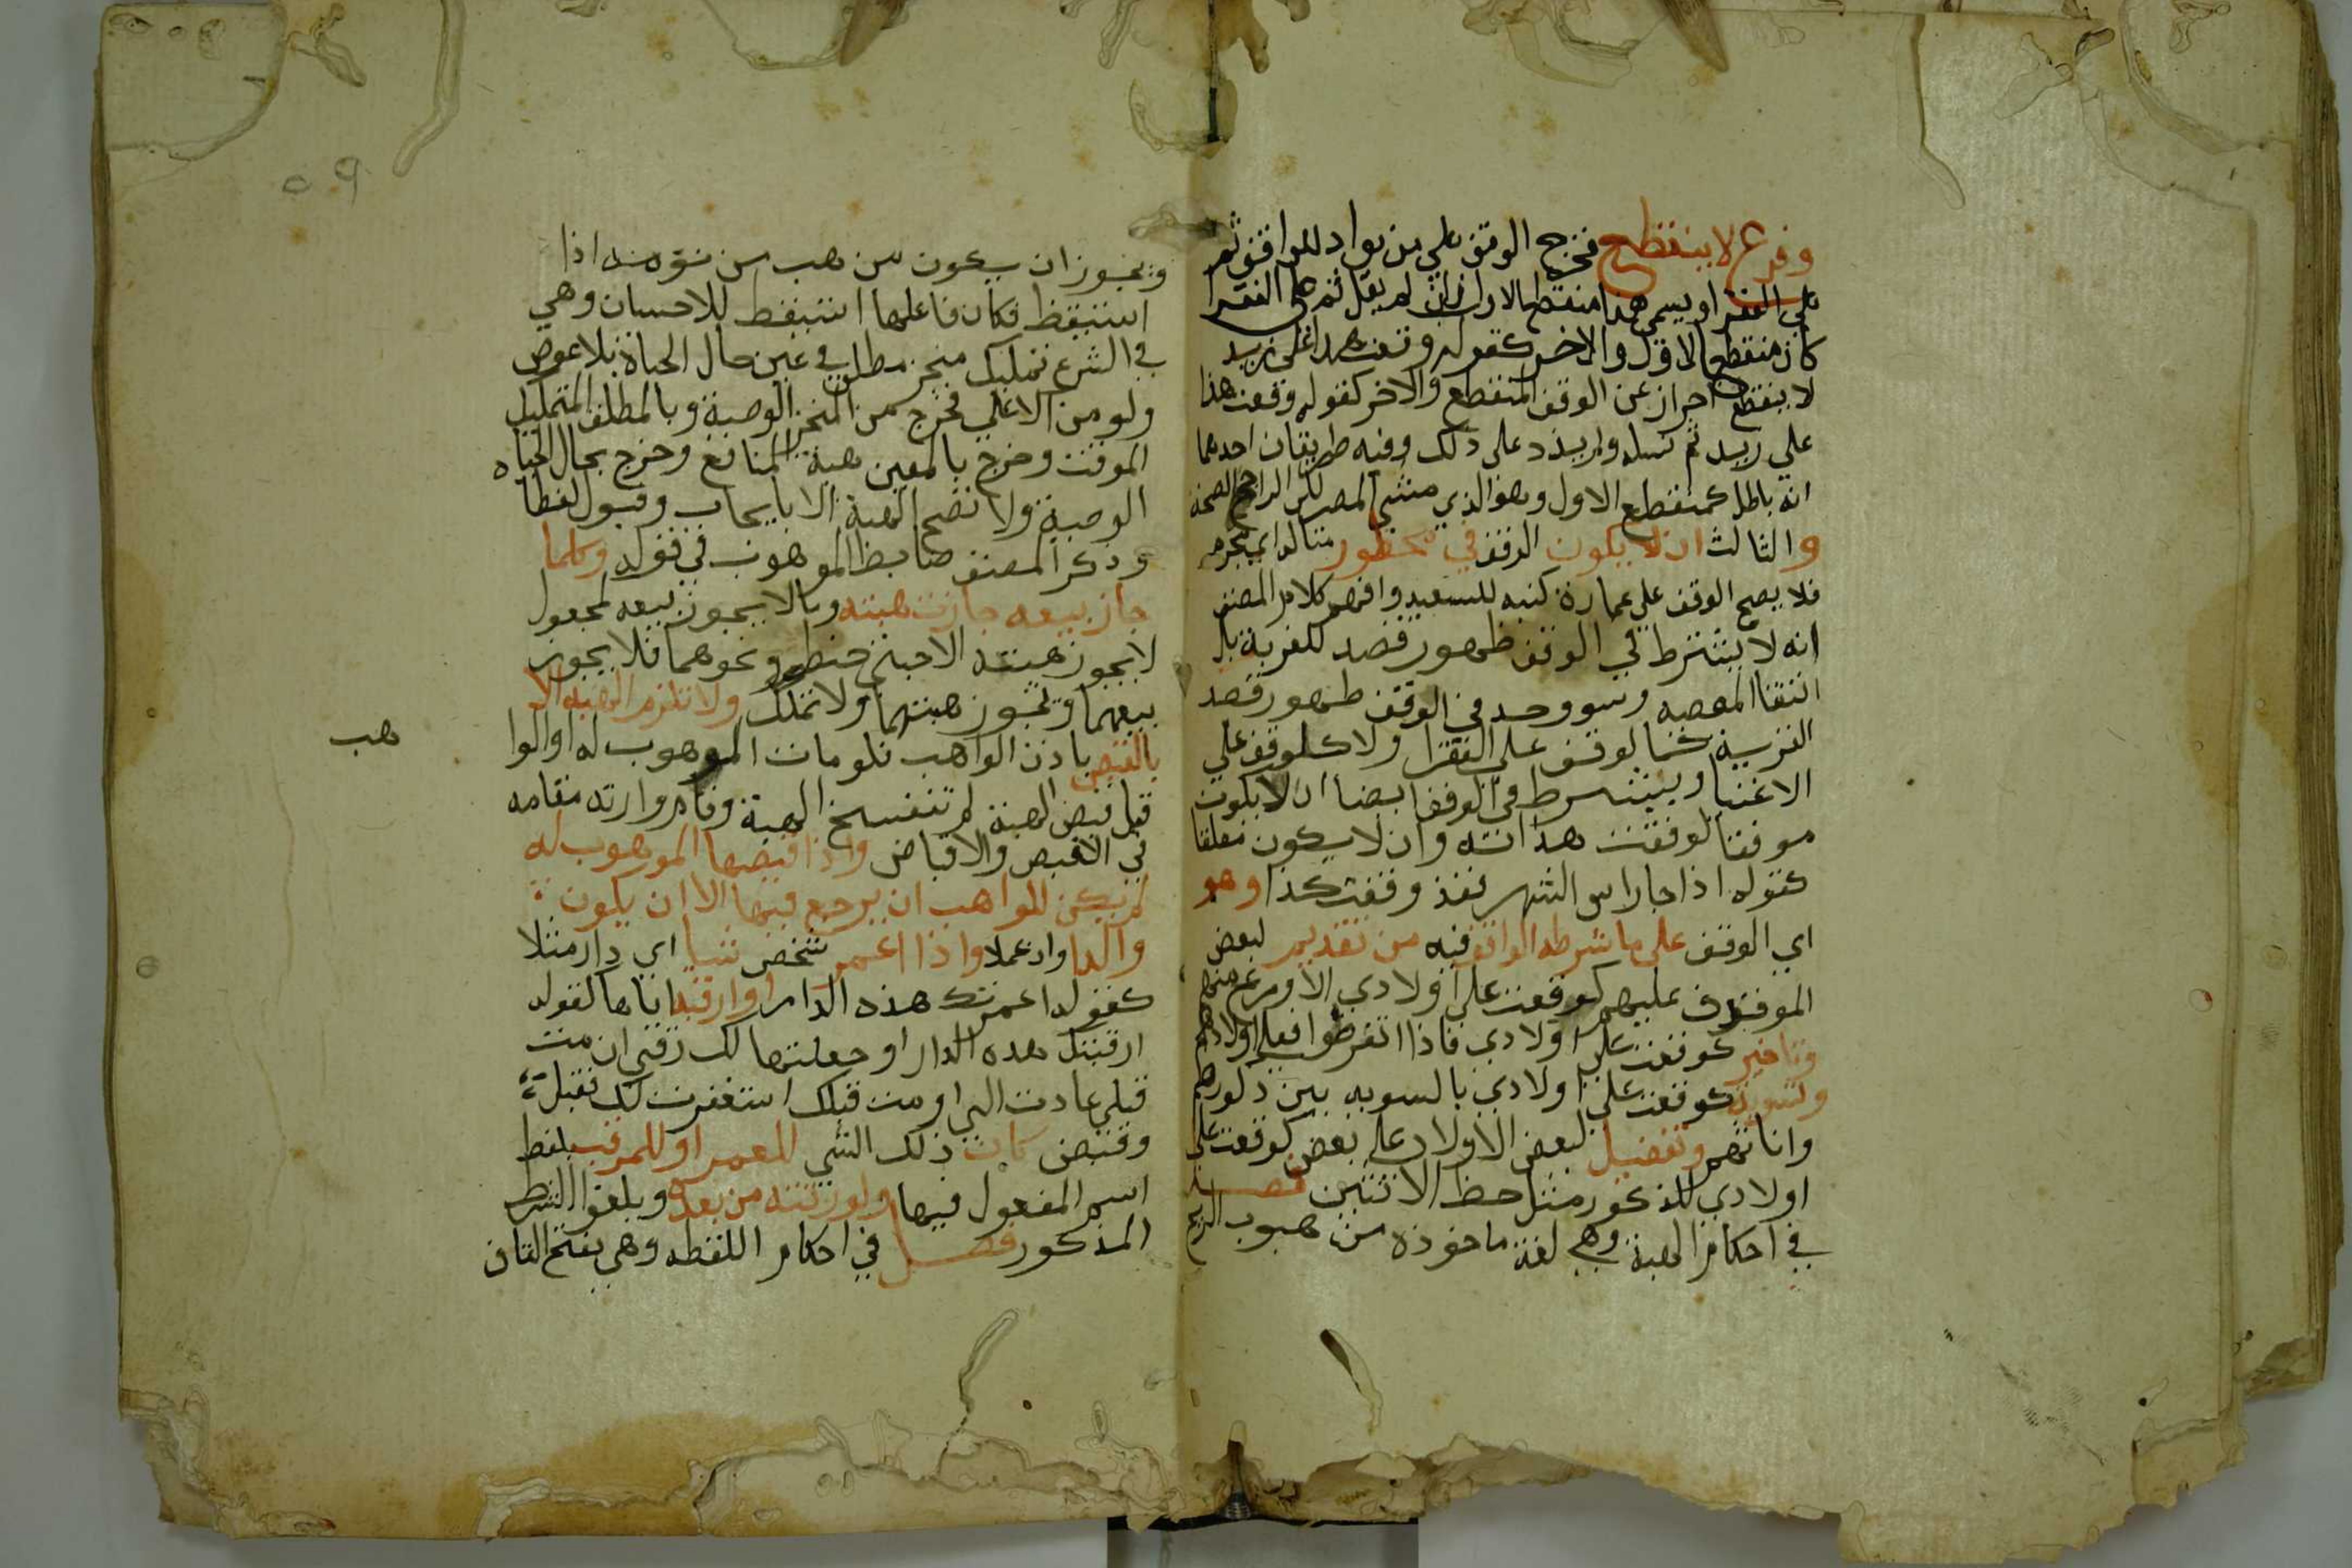 وفرع لا ينقطع فخرج الوقف على من يولد للواقف ثم
على الفقرا ويسمي هذا منقطع الاول فان لم يقل ثم على الفقرا
كان منقطع الاول والاخر كقوله وقفت هذا على زيد
لا ينقطع احراز عن الوقف المنقطع والاخر كقوله وقفت هذا
على زيد ثم نسله ولم يزد على ذلك وفيه طريقان احدهما
انه باطل كمنقطع الاول وهو الذي مشي المص لكن الراجح الصحة
والثالث ان لا يكون الوقف في محظور متالداي محرم
فلا يصح الوقف على عمارة كنيسه للتعبد وافهم كلام المصنف
انه لا يشترط في الوقف ظهور قصد القربة بل
انتفا المعصيه وسو وجد في الوقف ظهور قصد
القربة كالوقف على الفقرا ولا كالوقف على
الاغنيا ويشترط في الوقف ايضا ان لا يكون
موقتا لوقفت هذا سنه وان لا يكون معلقا
كقوله اذا جا راس الشهر فقد وقفت كذا وهو
اي الوقف على ما شرطه الواقف فيه من تقديم لبعض
الموقوف عليهم كوقفت على اولادي الاورع منهم
وتاخير كوقفت على اولادي فاذا انقرضوا فعلى اولادهم
وتسوية كوقفت على اولادي بالسويه بين ذكورهم
واناثهم وتفضيل لبعض الاولاد على بعض كوقفت على
اولادي للذكر مثل حظ الانثيين فصل
في احكام الهبة وهي لغة ماخوذة من هبوب الريح
٥٩
ويجوز ان يكون من هب من نومه اذا
استيقظ فكان فاعلها استيقظ للاحسان وهي
في الشرع تمليك منجز مطلق في عين حال الحياة بلا عوض
ولو من الاعلى فخرج من المنجز الوصية وبالمطلق التمليك
الموقت وخرج بالعين هبة المنافع وخرج بحال الحياه
الوصية ولا تصح الهبة الا بايجاب وقبول لفظا
وذكر المصنف ضابط الموهوب في قوله وكلما
جاز بيعه جازت هبته وما لا يجوز بيعه كمجهول
لا يجوز هبته الا حبتي حنطه ونحوهما فلا يجوز
بيعهما وتجوز هبتهما ولا تملك ولا تلزم الهبه الا
بالقبض باذن الواهب فلو مات الموهوب له او الوا
هب
قبل قبض الهبة لم تنفسخ الهبة وقام وارثه مقامه
في القبض والاقباض واذا قبضها الموهوب له
لم يكن للواهب ان يرجع فيها الا ان يكون
والدا وان علا واذا اعمر شخص شيا اي دار مثلا
كقوله اعمرتك هذه الدار او ارقبه اياها كقوله
ارقبتك هذه الدار او جعلتها لك رقبى ان مت
قبلي عادت الي او مت قبلك استقرت لك فقبل
وقبض كان ذلك الشي للمعمر او للمرقب بلفظ
اسم المفعول فيها ولورثته من بعده ويلغوا الشرط
المذكور فصل في احكام اللقطه وهي بفتح القاف